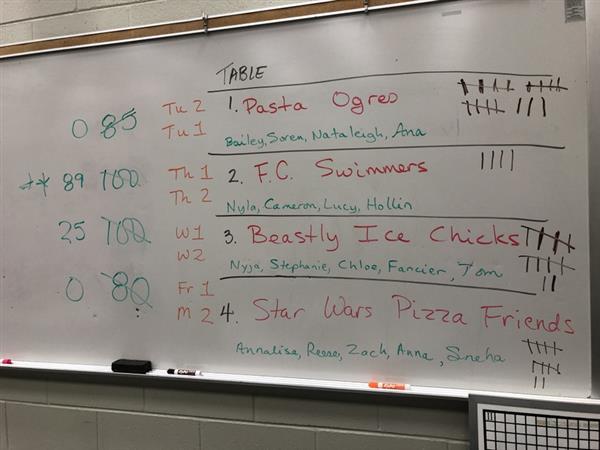 TABLE
0 85 Tu 2 1. Pasta Ogres
Tu 1 Bailey, Soren, Nataleigh, Ana
** 89 100 Th 1 2. F.C. Swimmers
Th 2 Nyla, Cameron, Lucy, Hollin
25 100 W1 3. Beastly Ice Chicks
W2 Nyja, Stephanie, Chloe, Fancier, Tom
0 80 Fr 1 4. Star Wars Pizza Friends
M 2
Annalisa, Reese, Zach, Anna, Sneha